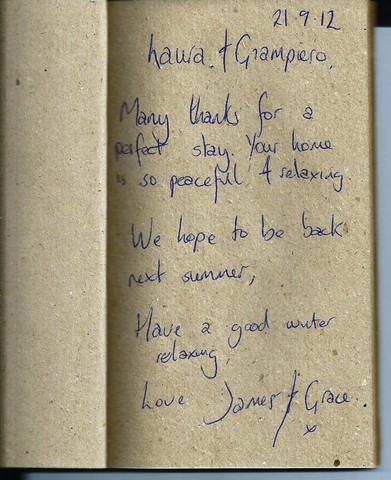 21.9.12
Laura & Giampiero,
Many thanks for a
perfect stay. Your home
is so peaceful & relaxing.
We hope to be back
next summer,
Have a good winter
relaxing,
Love James & Grace
x